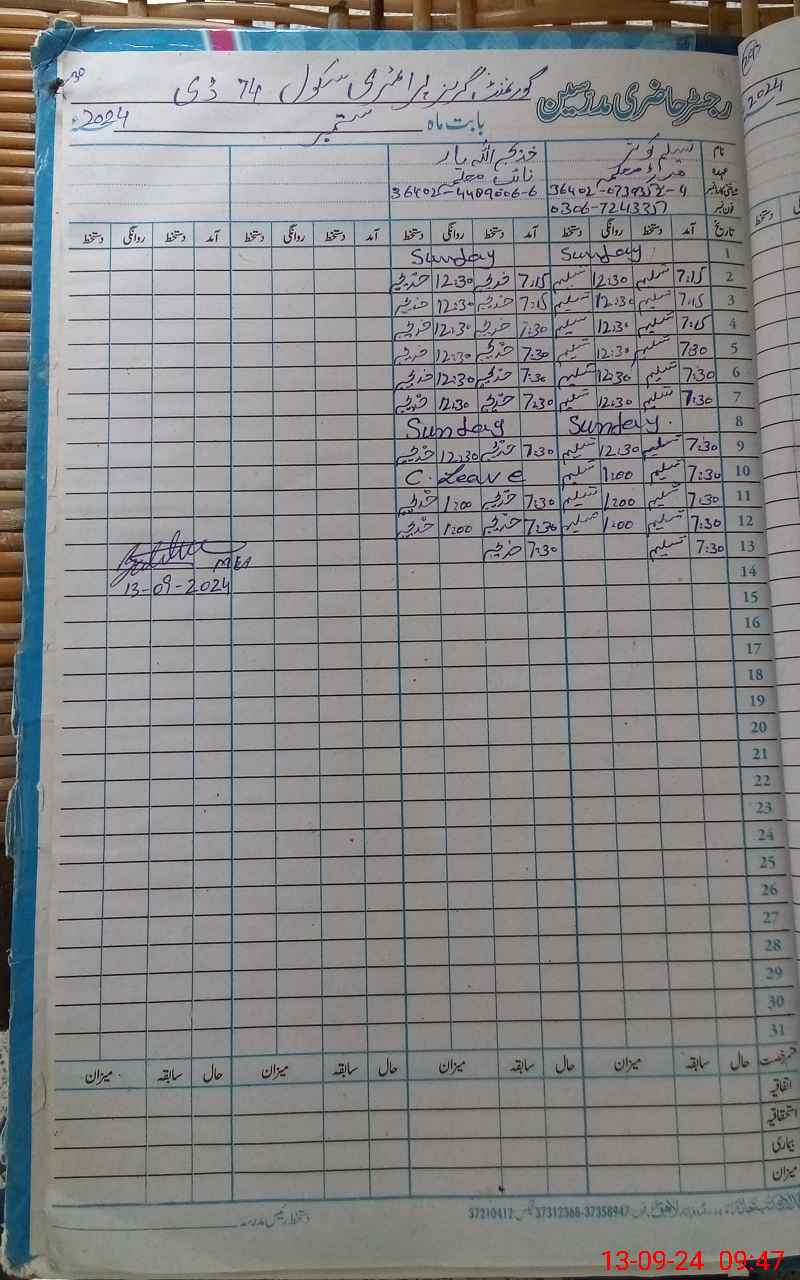 30
رجسٹر حاضری مدرسین گورنمنٹ گرلز پرائمری سکول 74 ڈی
بابت ماہ ستمبر 2024ء
29
2024
نام تسلیم کوثر خدیجہ اللہ یار
عہدہ معلمہ نائب معلمہ
36402-0739357-4 36402-4489006-6
فون نمبر 0306-7243351
تاریخ آمد دستخط روانگی دستخط آمد دستخط روانگی دستخط آمد دستخط روانگی دستخط آمد دستخط روانگی دستخط
1 Sunday Sunday
2 7:15 تسلیم 12:30 تسلیم 7:15 خدیجہ 12:30 خدیجہ
3 7:15 تسلیم 12:30 تسلیم 7:15 خدیجہ 12:30 خدیجہ
4 7:15 تسلیم 12:30 تسلیم 7:30 خدیجہ 12:30 خدیجہ
5 7:30 تسلیم 12:30 تسلیم 7:30 خدیجہ 12:30 خدیجہ
6 7:30 تسلیم 12:30 تسلیم 7:30 خدیجہ 12:30 خدیجہ
7 7:30 تسلیم 12:30 تسلیم 7:30 خدیجہ 12:30 خدیجہ
8 Sunday. Sunday
9 7:30 تسلیم 12:30 تسلیم 7:30 خدیجہ 12:30 خدیجہ
10 7:30 تسلیم 1:00 تسلیم C. Leave
11 7:30 تسلیم 1:00 تسلیم 7:30 خدیجہ 1:00 خدیجہ
12 7:30 تسلیم 1:00 تسلیم 7:30 خدیجہ 1:00 خدیجہ
13 7:30 تسلیم 7:30 خدیجہ
MEA
14
13-09-2024
15
16
17
18
19
20
21
22
23
24
25
26
27
28
29
30
31
قسم رخصت حال سابقہ میزان حال سابقہ میزان حال سابقہ میزان حال سابقہ میزان
اتفاقیہ
استحقاقیہ
بیماری
میزان
دستخط رئیس مدرسہ
لاہور فون 37358947-37312368 فیکس 37210412
13-09-24 09:47